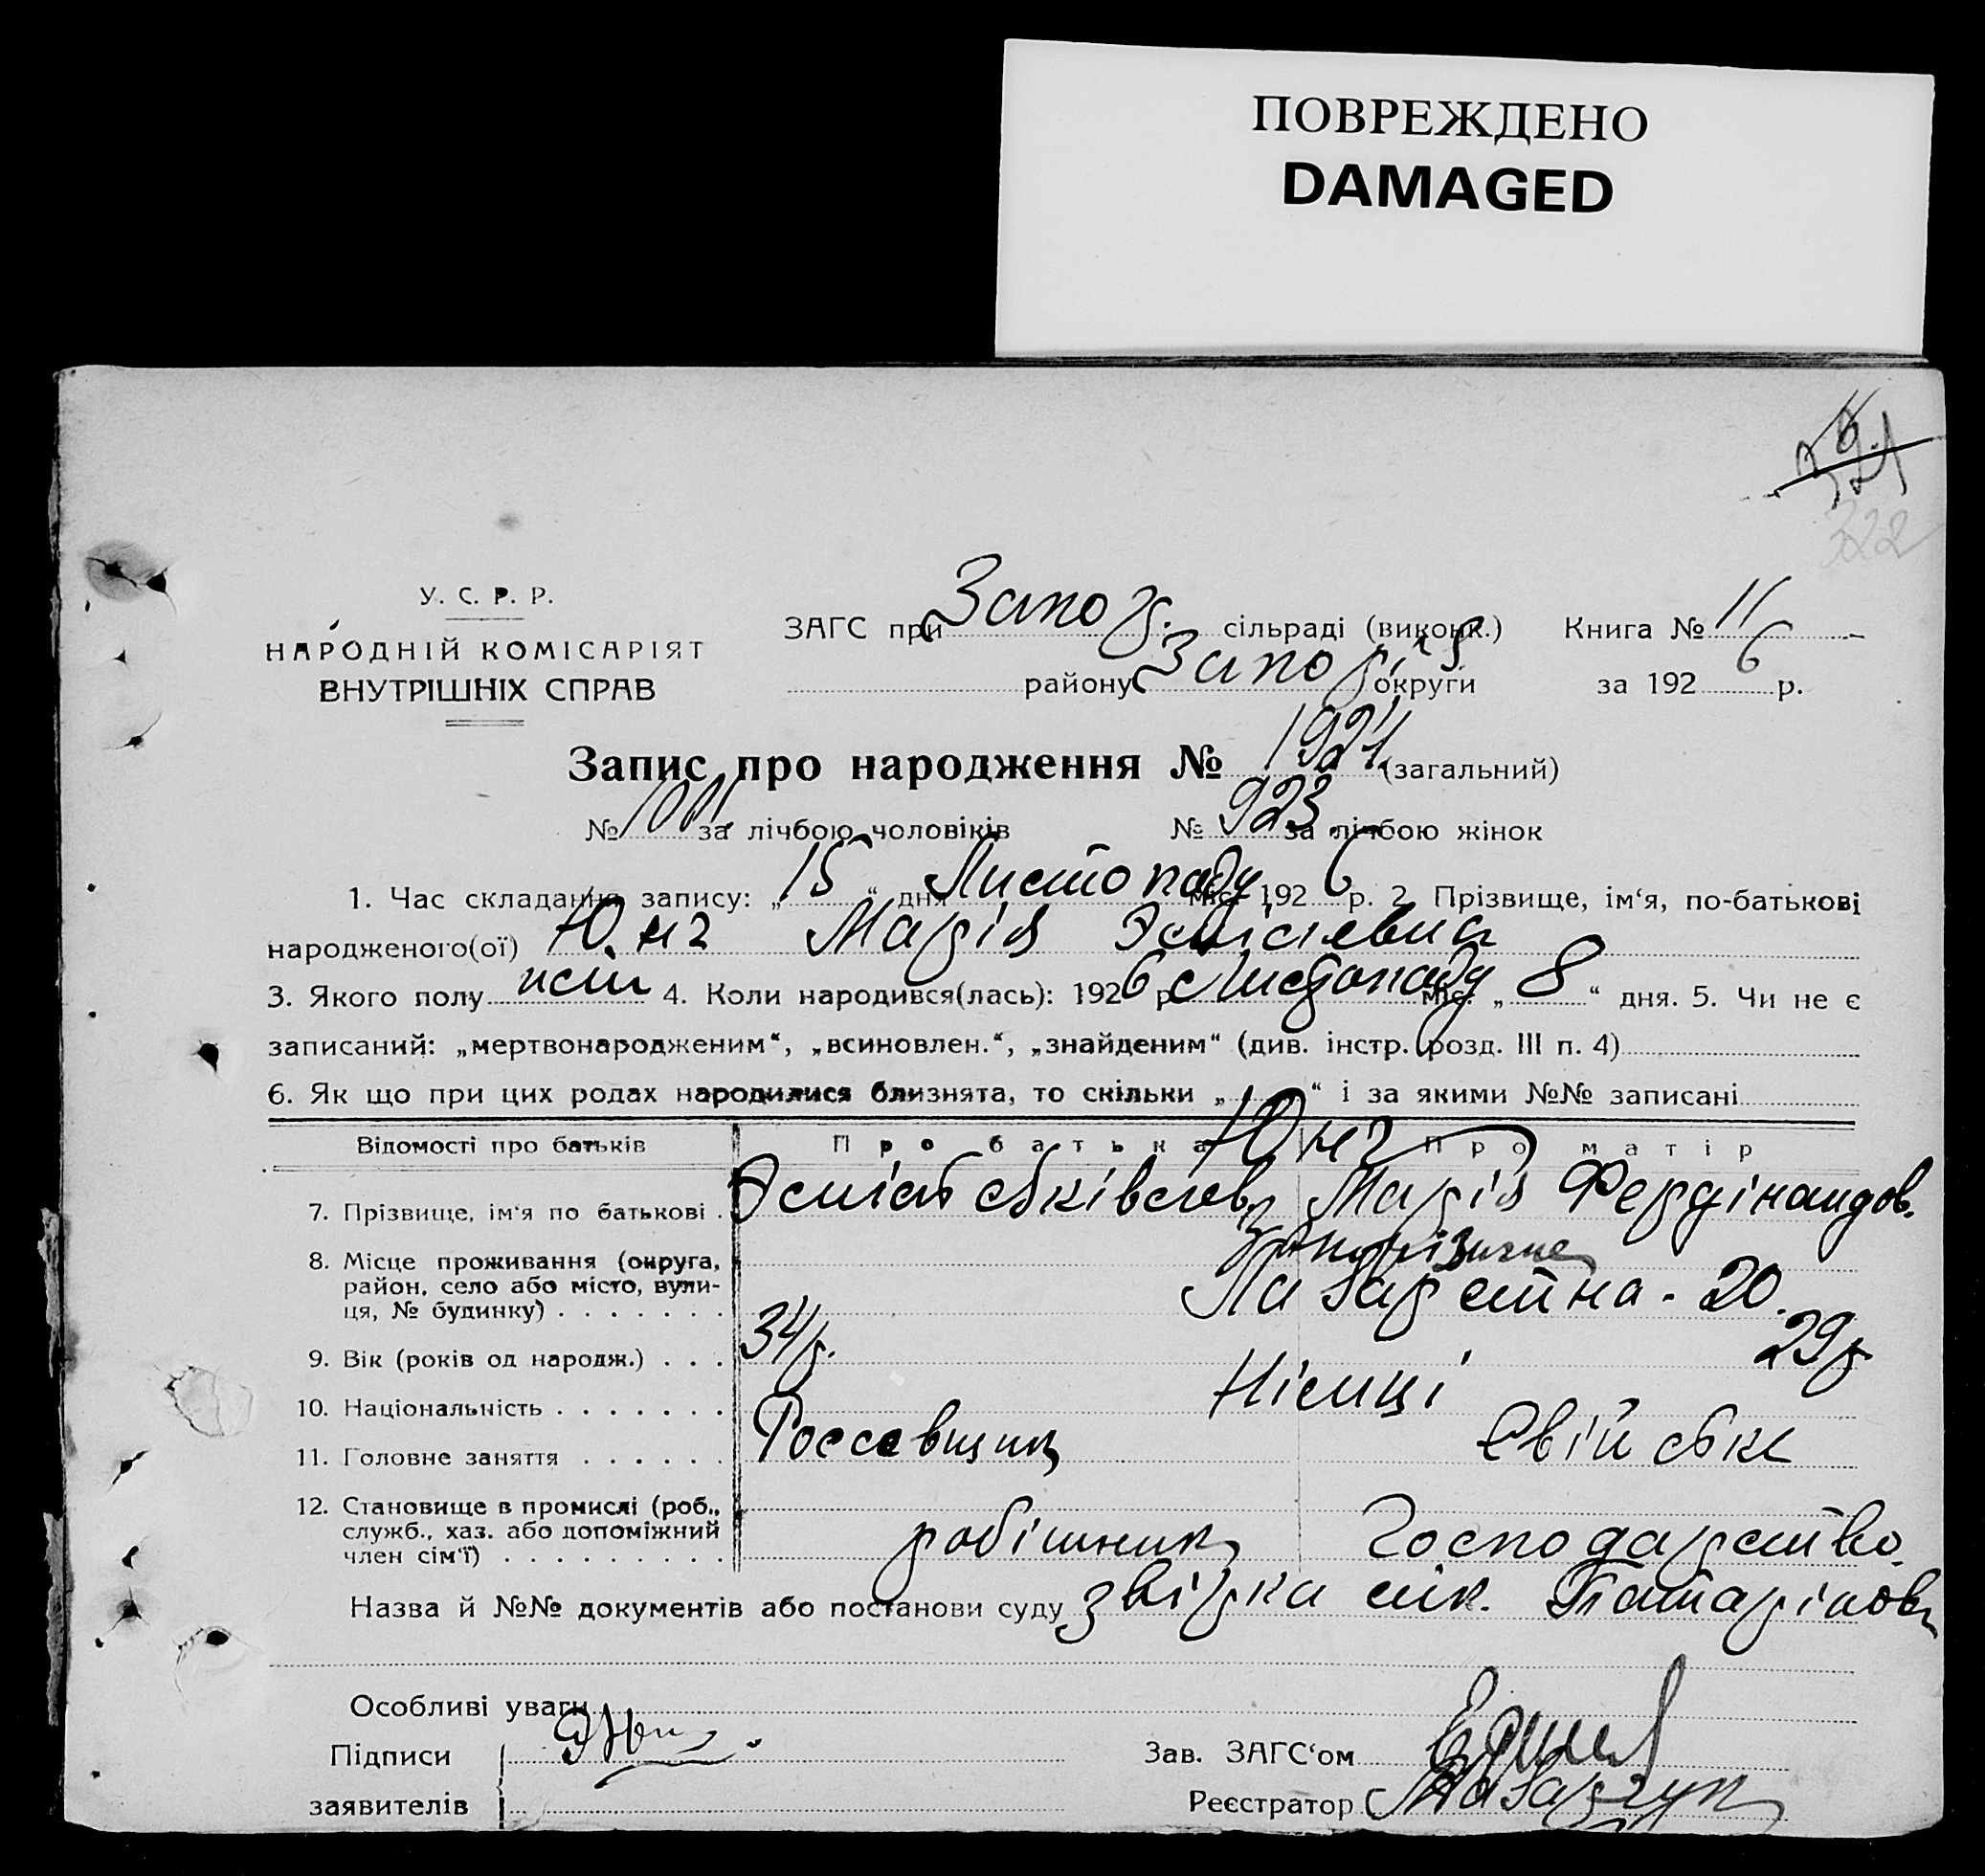 ПОВРЕЖДЕНО
DAMAGED
322
У. С. Р. Р.
НАРОДНІЙ КОМІСАРІЯТ
ВНУТРІШНІХ СПРАВ
ЗАГС при Запоз. сільраді (виконк.) Книга № 11
району Запоріз округи за 1926 р.
Запис про народження № 1924 (загальний)
№ 1001 за лічбою чоловіків № 923 за лічбою жінок
1. Час складання запису: „15“ дня Листопаду міс. 1926 р. 2. Прізвище, ім‘я, по-батькові
народженого(ої) Юнг Марія
3. Якого полу жін 4. Коли народився(лась): 1926 р. Листопаду міс. „8“ дня. 5. Чи не є
записаний: „мертвонародженим“, „всиновлен.“, „знайденим“ (див. інстр. розд. III п. 4)
6. Як що при цих родах народилися близнята, то скільки „ “ і за якими №№ записані
Відомості про батьків Про батька Про матір
Юнг
7. Прізвище, ім‘я по батькові . Марія Фердінандов.
8. Місце проживання (округа,
район, село або місто, вули-
ця, № будинку) . . . . . . . Лазаретна - 20.
9. Вік (років од народж.) . . . 34 р. 29 р.
10. Національність . . . . . . . Німці
11. Головне заняття . . . . . . Свійське
12. Становище в промислі (роб.,
служб., хаз. або допоміжний
член сім‘ї) . . . . . . . . . робітник Господарство.
Назва й №№ документів або постанови суду
Особливі уваги
Підписи Зав. ЗАГС‘ом
заявителів Реєстратор